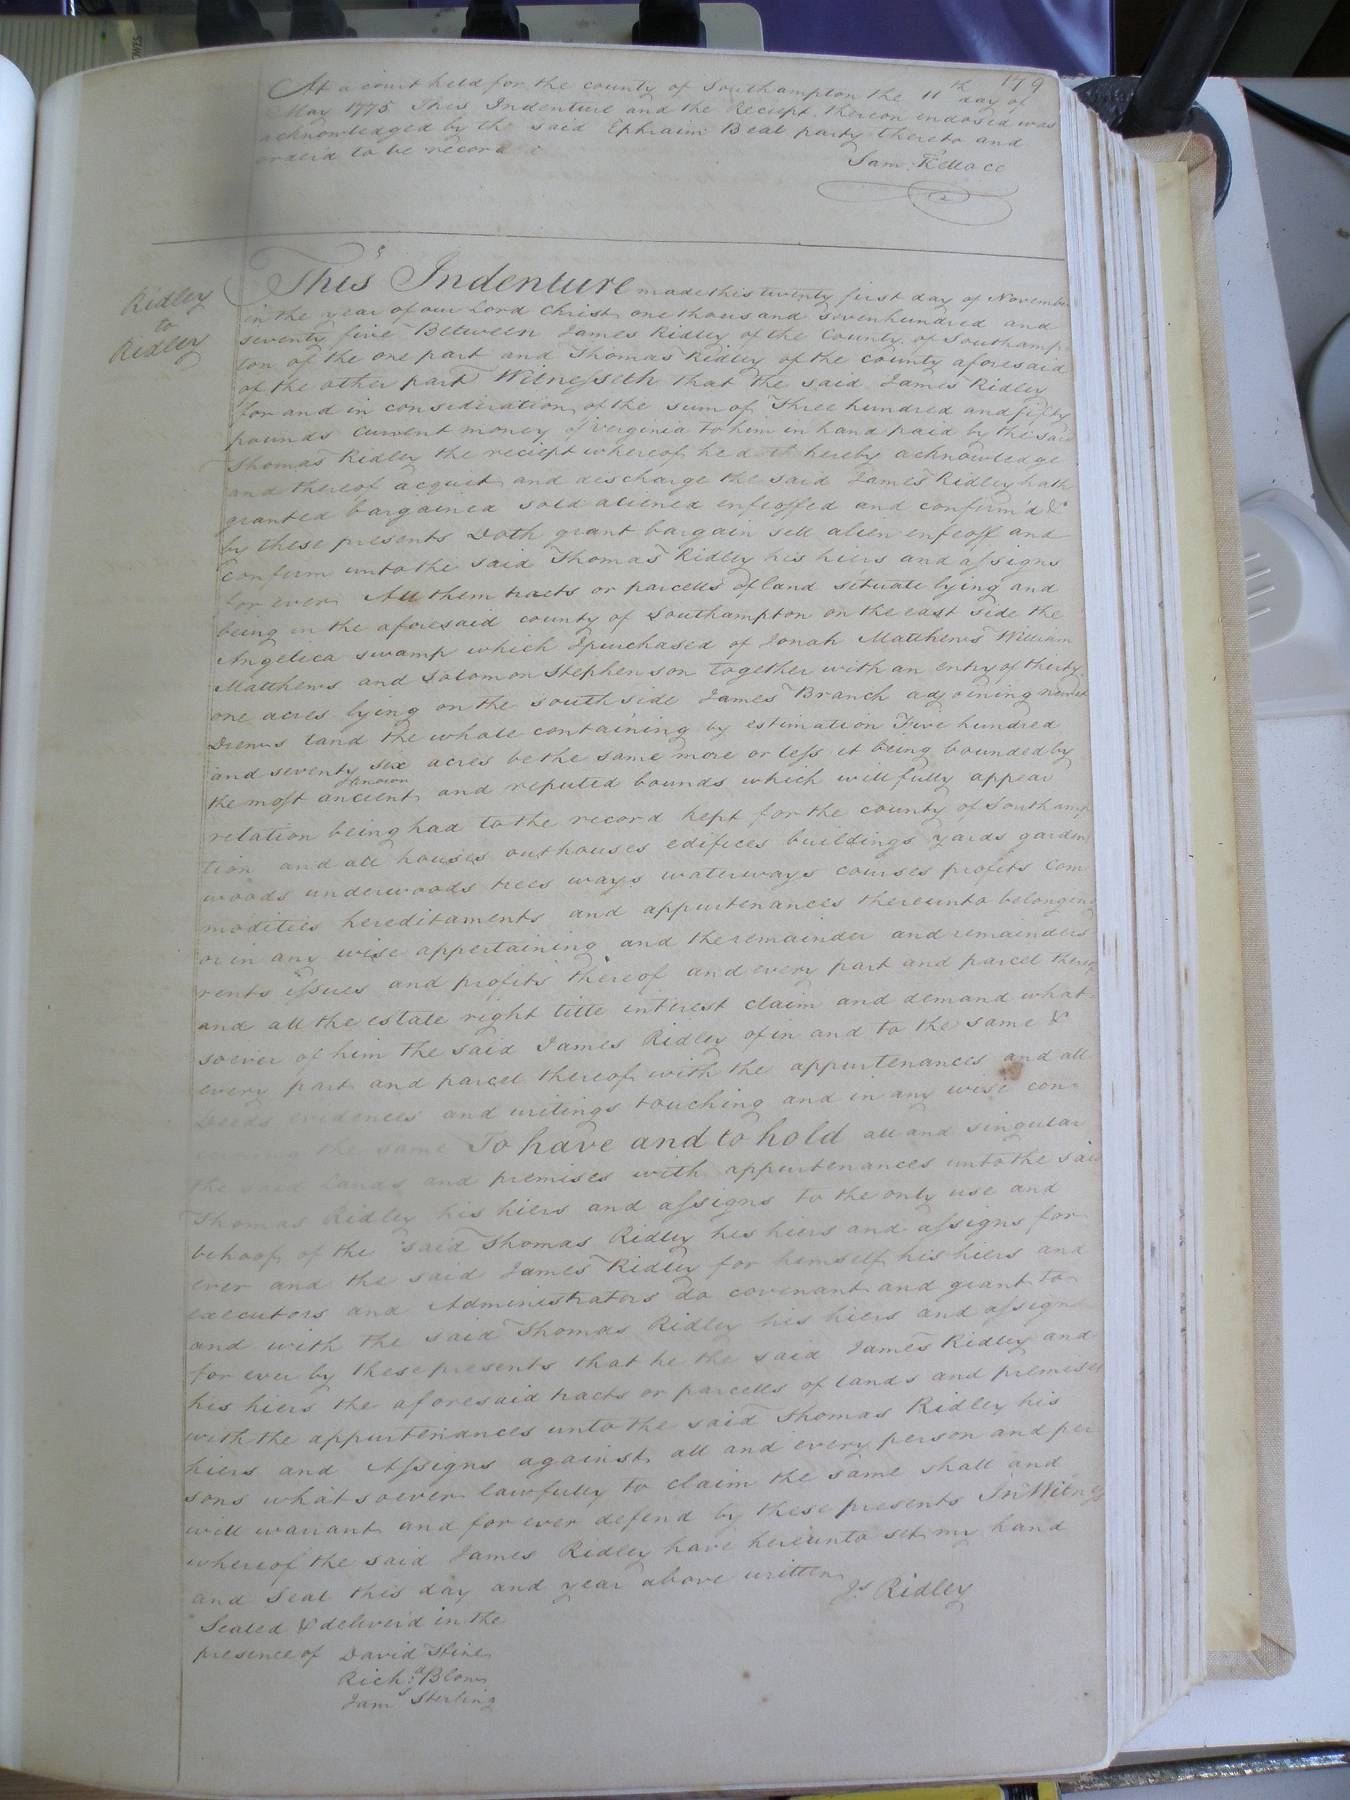 179
At a court held for the county of Southampton the 11th day of
May 1775 This Indenture and the Receipt thereon endosed was
acknowledged by the said Ephraim Beal party thereto and
order'd to be record
Sam: Kello CC
Ridley
to
Ridley
This Indenture made this twenty first day of November
in the year of our Lord Christ one thousand sevenhundred and
seventy five Between James Ridley of the County of Southamp
ton of the one part and Thomas Ridley of the county aforesaid
of the other part Witnesseth that the said James Ridley
for and in consideration of the sum of Three hundred and fifty
pounds current money of Verginia to him in hand paid by the said
Thomas Ridley the reciept whereof he doth hereby acknowledge
and thereof acquet and discharge the said James Ridley hath
granted bargained sold aliened enfeoffed and confirm'd &
by these presents Doth grant bargain sell alien enfeoff and
confirm unto the said Thomas Ridley his hiers and assigns
for ever All them tracts or parcells of land situate lying and
being in the aforesaid county of Southampton on the east side the
Angelica swamp which I purchased of Jonah Matthews William
Matthews and Solomon Stephenson together with an entry of thirty
one acres lying on the south side James Branch adjoining
Drews land the whole containing by estimation Five hundred
and seventy six acres be the same more or less it being bounded by
the most ancient &known and reputed bounds which will fully appear
relation being had to the record kept for the county of Southamp
tion and all houses outhouses edifices buildings yards gardens
woods underwoods trees ways waterways courses profits com
modities hereditaments and appurtenances thereunto belonging
or in any wise appertaining and the remainder and remainders
rents issues and profits thereof and every part and parcel thereof
and all the estate right title interest claim and demand what
soever of him the said James Ridley of in and to the same &
every part and parcel thereof with the appurtenances and all
Deeds evidences and writings touching and in any wise con
cerning the same To have and to hold all and singular
the said Lands and premises with appurtenances unto the said
Thomas Ridley his hiers and assigns to the only use and
behoof of the said Thomas Ridley his hiers and assigns for
ever and the said James Ridley for hemself his hiers and
executors and Administrators do covenant and grant to
and with the said Thomas Ridley his hiers and assigns
for ever by these presents that he the said James Ridley and
his hiers the aforesaid tracts or parcells of lands and premises
with the appurtenances unto the said Thomas Ridley his
hiers and Assigns against all and every person and per
sons whatsoever lawfully to claim the same shall and
will warrant and for ever defend by these presents In Witness
whereof the said James Ridley have hereunto set my hand
and Seal this day and year above written
Js Ridley
Sealed & deliver'd in the
presence of David Hines
Richd: Blow
Jams Sterling